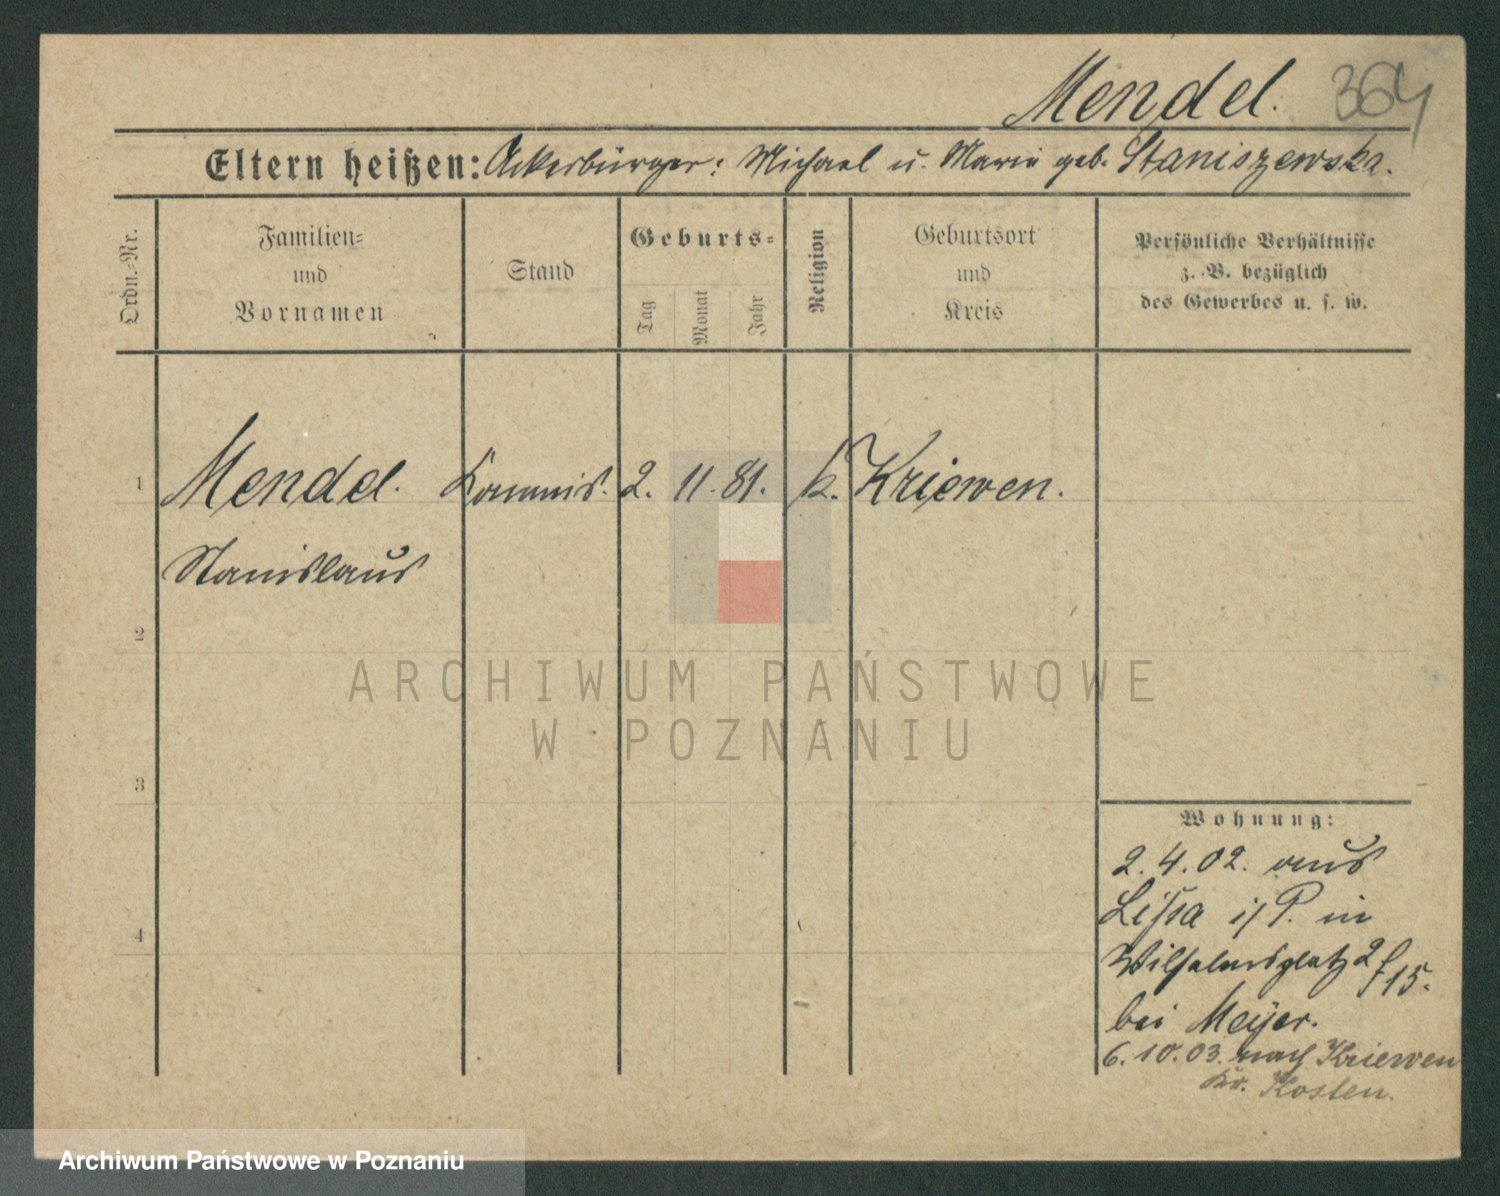 Mendel. 364
Eltern heißen: Ackerbürger: Michael u. Marie geb. Staniszewska.
Ordn.-Nr.
Familien-
und
Vornamen
Stand
Geburts-
Tag
Monat
Jahr
Religion
Geburtsort
und
Kreis
Persönliche Verhältnisse
z. B. bezüglich
des Gewerbes u. s. w.
1 Mendel. Kommis. 2. 11. 81. k. Kriewen.
Stanislaus
2
3
4
Wohnung:
2. 4. 02. aus
Lissa i/P. in
Wilhelmsplatz 2 f 15.
bei Meyer.
6. 10. 03. nach Kriewen
Kr. Kosten.
ARCHIWUM PAŃSTWOWE
W POZNANIU
Archiwum Państwowe w Poznaniu